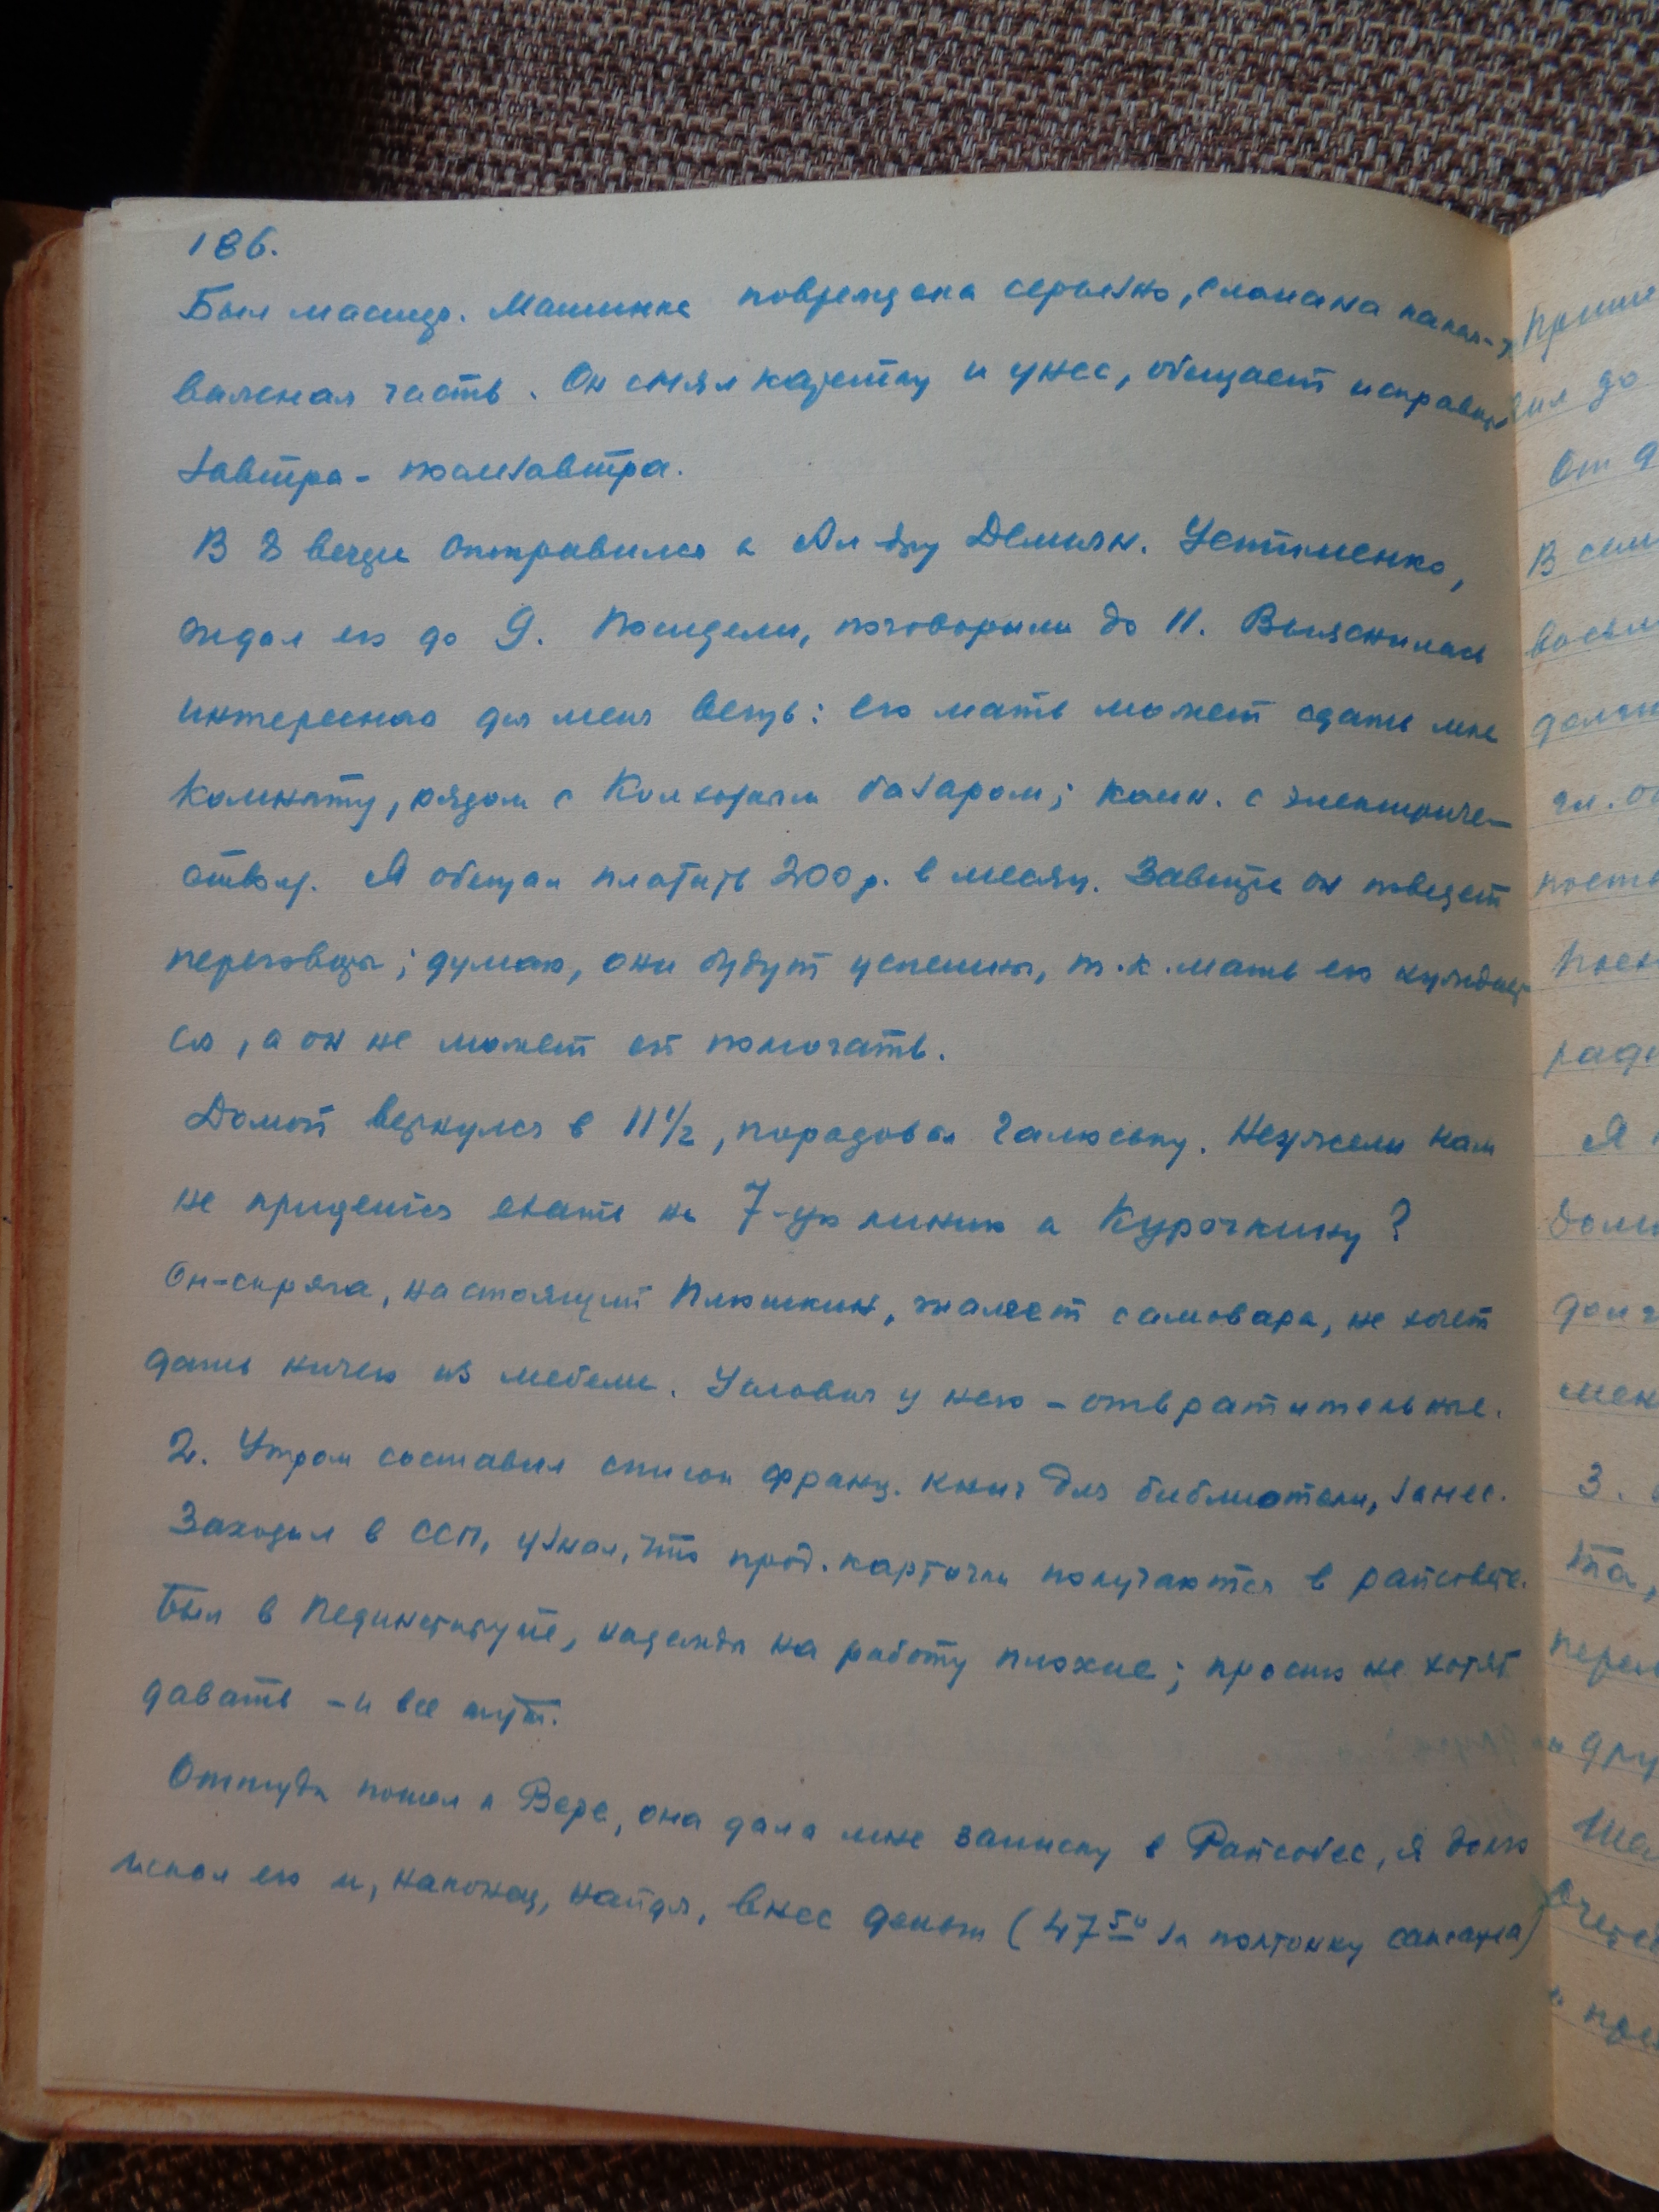 186.
Был мастер. Машинка повреждена серьезно, сломана какая-то
важная часть. Он снял каретку и унес, обещает исправить
завтра - послезавтра.
В 8 вечера отправился к Ал-дру Демьян. Устименко,
ждал его до 9. Посидели, поговорили до 11. Выяснилась
интересная для меня вещь: его мать может сдать мне
комнату, рядом с Колхозным базаром; комн. с электриче-
ством. Я обещал платить 200 р. в месяц. Завтра он поведет
переговоры; думаю, они будут успешны, т.к. мать его нуждает-
ся, а он не может ей помогать.
Домой вернулся в 11 1/2, порадовал Галюську. Неужели нам
не придется ехать на 7-ую линию к Курочкину?
Он-скряга, настоящий Плюшкин, жалеет самовара, не хочет
дать ничего из мебели. Условия у него - отвратительные.
2. Утром составил список франц. книг для библиотеки, занес.
Заходил в ССП, узнал, что прод. карточки получаются в райсовете.
Был в Пединституте, надежды на работу плохие; просто не хотят
давать - и все тут.
Оттуда пошел к Вере, она дала мне записку в Райсобес, я долго
искал его и, наконец, найдя, внес деньги (47 50 за полтонну саксаула)
Прише
до
От
В сам
восем
должн
гл.
посте
Я
3.
та,